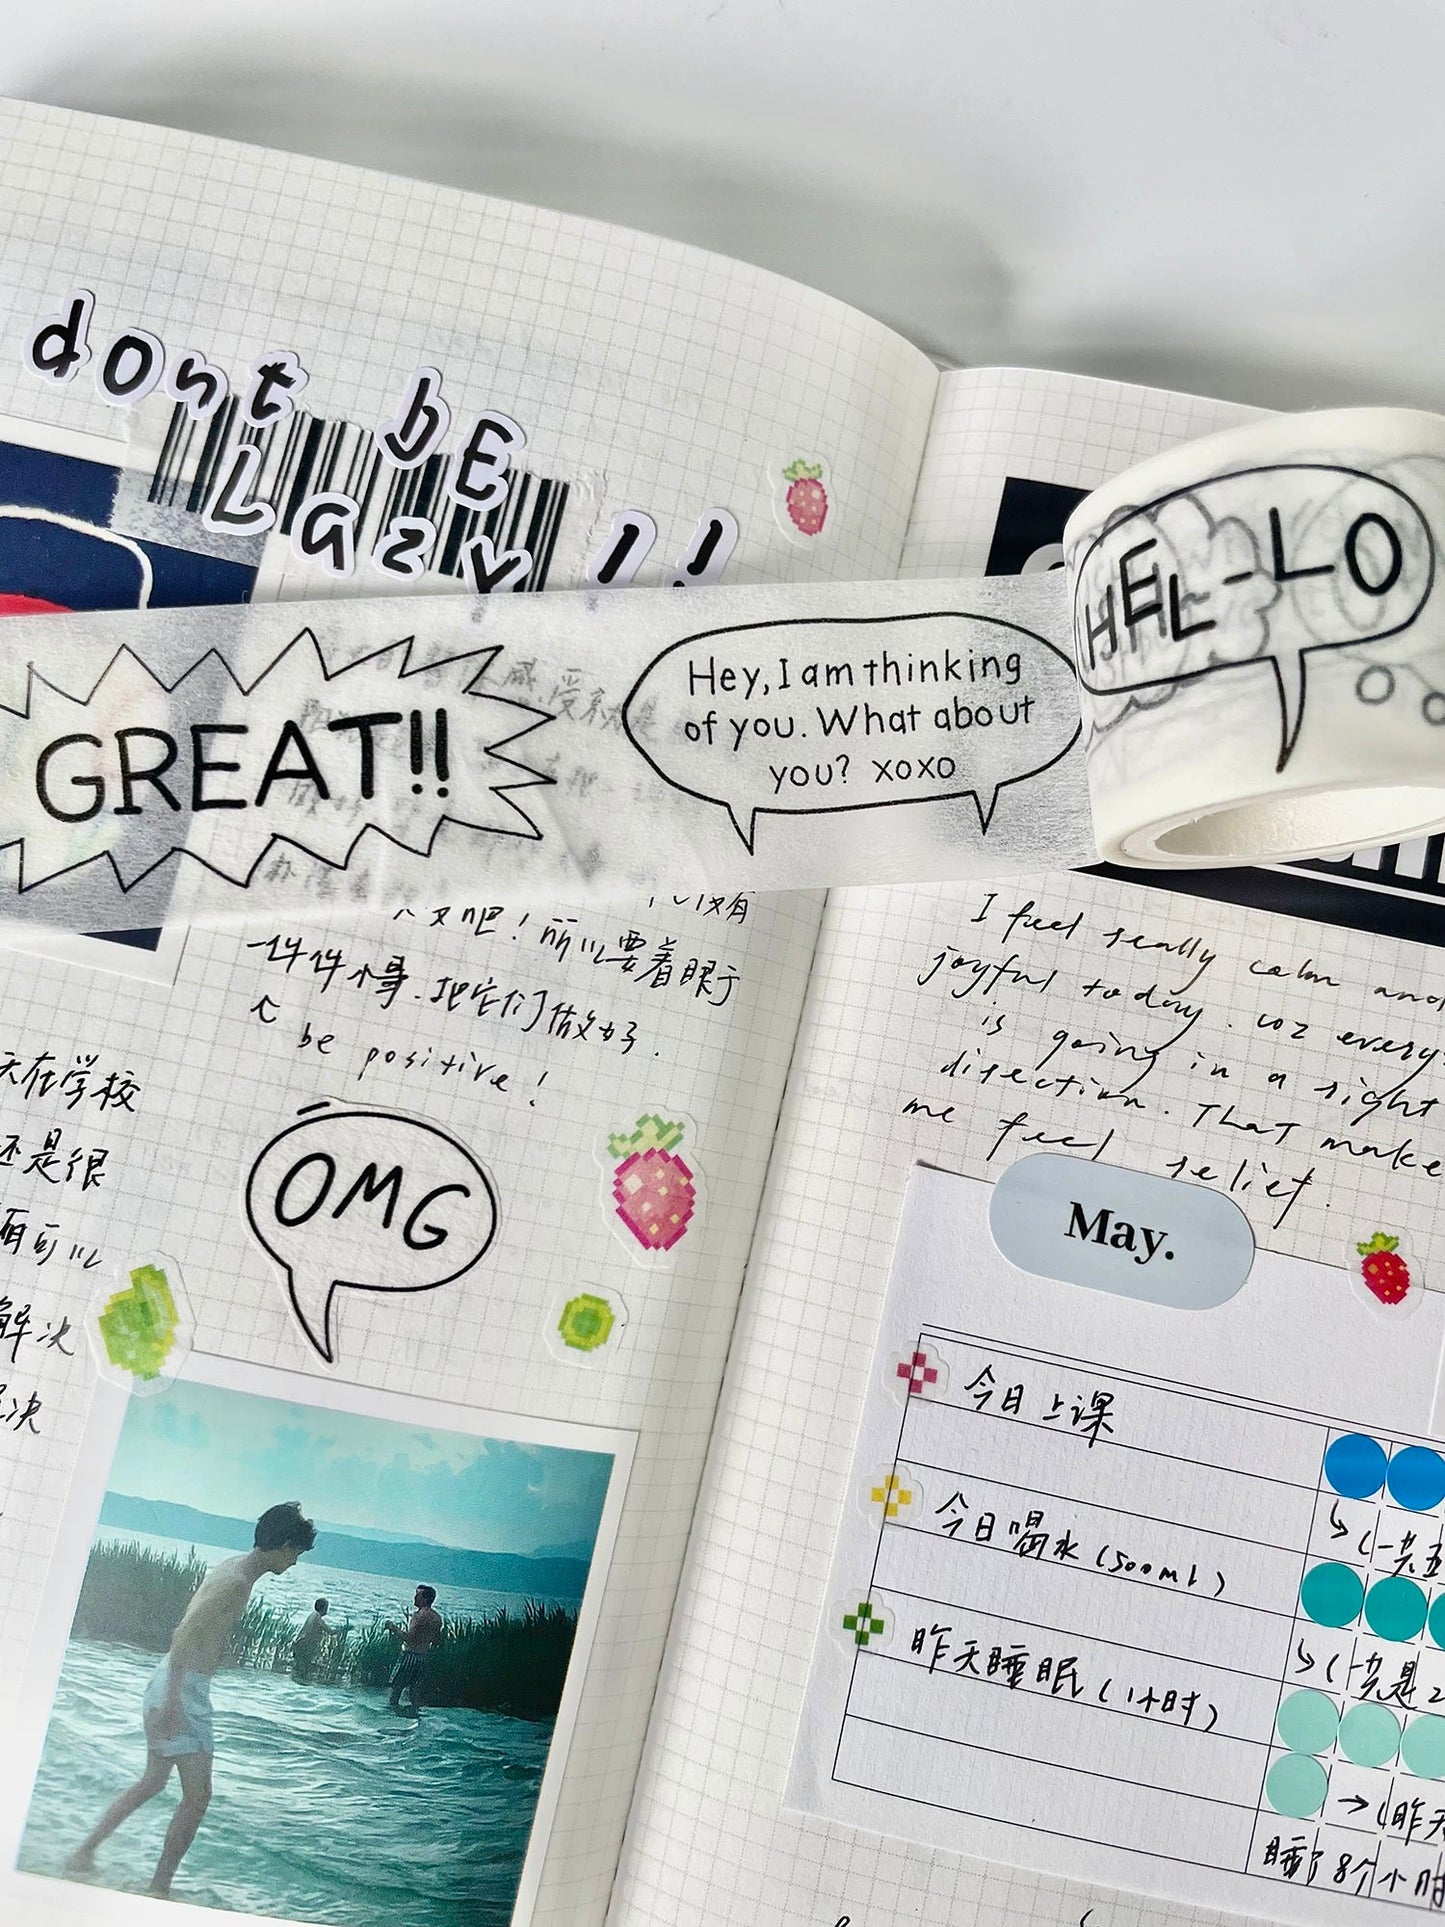 dont bE
Lazy !!
GREAT!!
Hey, I am thinking
of you. What about
you? xoxo
HEL-LO
吧！所以要着眼于
一件件小事.把它们做好.
be positive!
天在学校
还是很
可以
解决
决
OMG
I feel really calm and
joyful today. coz every
is going in a right
direction. That make
me feel relief.
May.
今日上课
→(一共五
今日喝水(500ml)
→(一共是2
昨天睡眠(1小时)
→(昨天
睡了8个小时